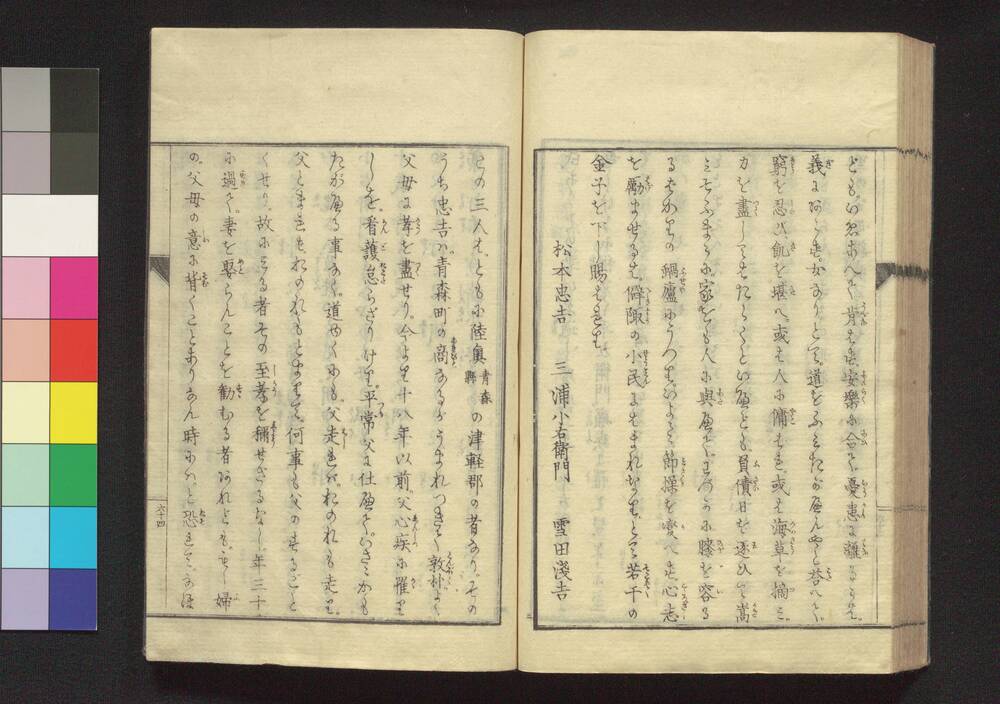 義にあらず。かなりとて。道をふみたがへんやと答へて。
窮を忍び飢を堪へ。或は人に傭はれ。或は海草を摘ミ。
力を盡してはたらくといへども負債日を逐ひて嵩
ミそふまゝに家をも人に與へて。わづかに膝を容る
るばかりの蝸廬にうつりすミ。節操を變へず。心志
を勵ませるは。僻陬の小民にはまれなりとて。若干の
金子を下し賜はれたり
松本忠吉　三浦小右衛門　雪田淺吉
この三人は。ともに陸奥青森縣の津軽郡の者なり。その
うち忠吉ハ青森町の商なるが。うまれつきて敦朴にて
父母に孝を盡せり。今より十八年以前。父心疾に罹り
しを。看護怠らざりけり。平常父に仕へて。いさゝかも
たがへる事なく。道ゆくにも。父走れバ。おのれも走り。
父とまれバおのれもとまりて。何事も父のするごと
くせり。故に見る者その至孝を稱せざるなし。年三十
に過て。妻を娶らんことを勸むる者あれども。もし婦
の。父母の意に背くことありなん時にハと恐れて。なほ
六十四